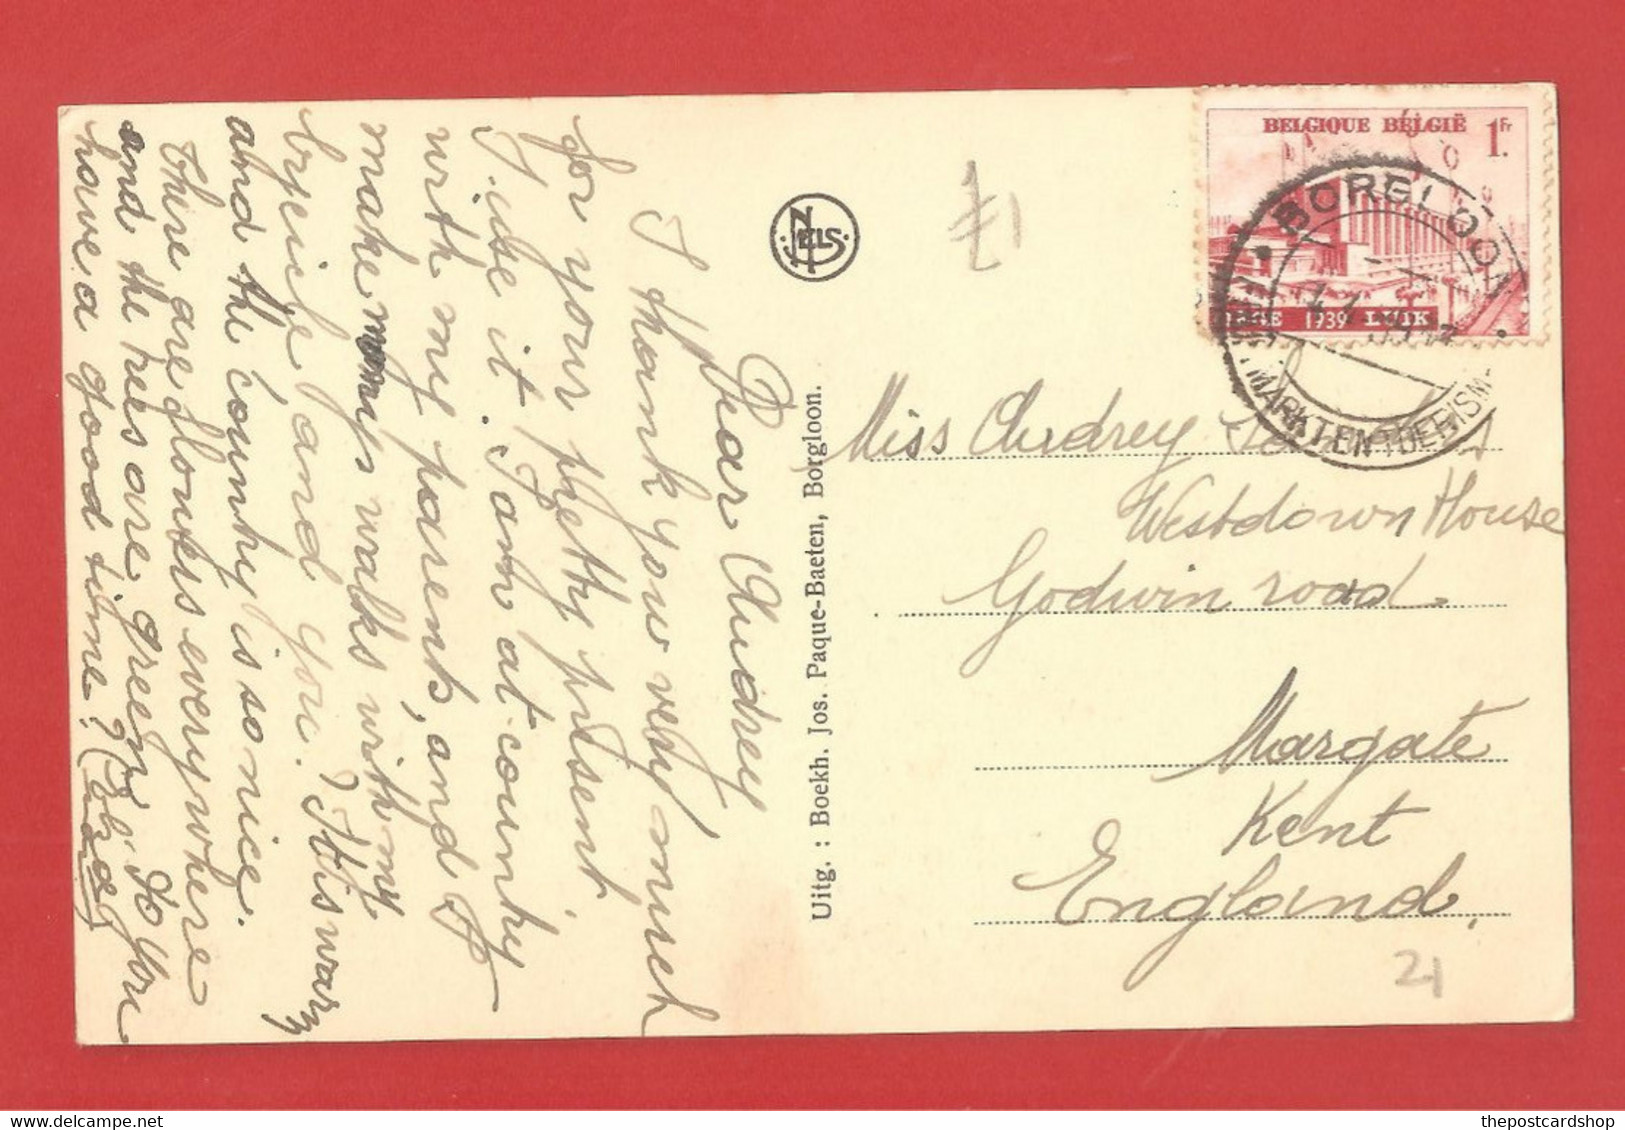 Dear Audrey,
I thank you very much
for your pretty present.
I use it. I am at country
with my parents, and I
make many walks with my
bycicle and you? It is warm
and the country is so nice.
Thire are flowers everywhere
and the tries are green. Do you
have a good time?
NELS
£1
Uitg. : Boekh. Jos. Paque-Baeten, Borgloon.
BELGIQUE BELGIË 1Fr.
1939 LUIK
BORGLOON
MARKT EN TOERISM
Miss Audrey
Westdown House
Godwin road
Margate
Kent
England.
21
thepostcardshop